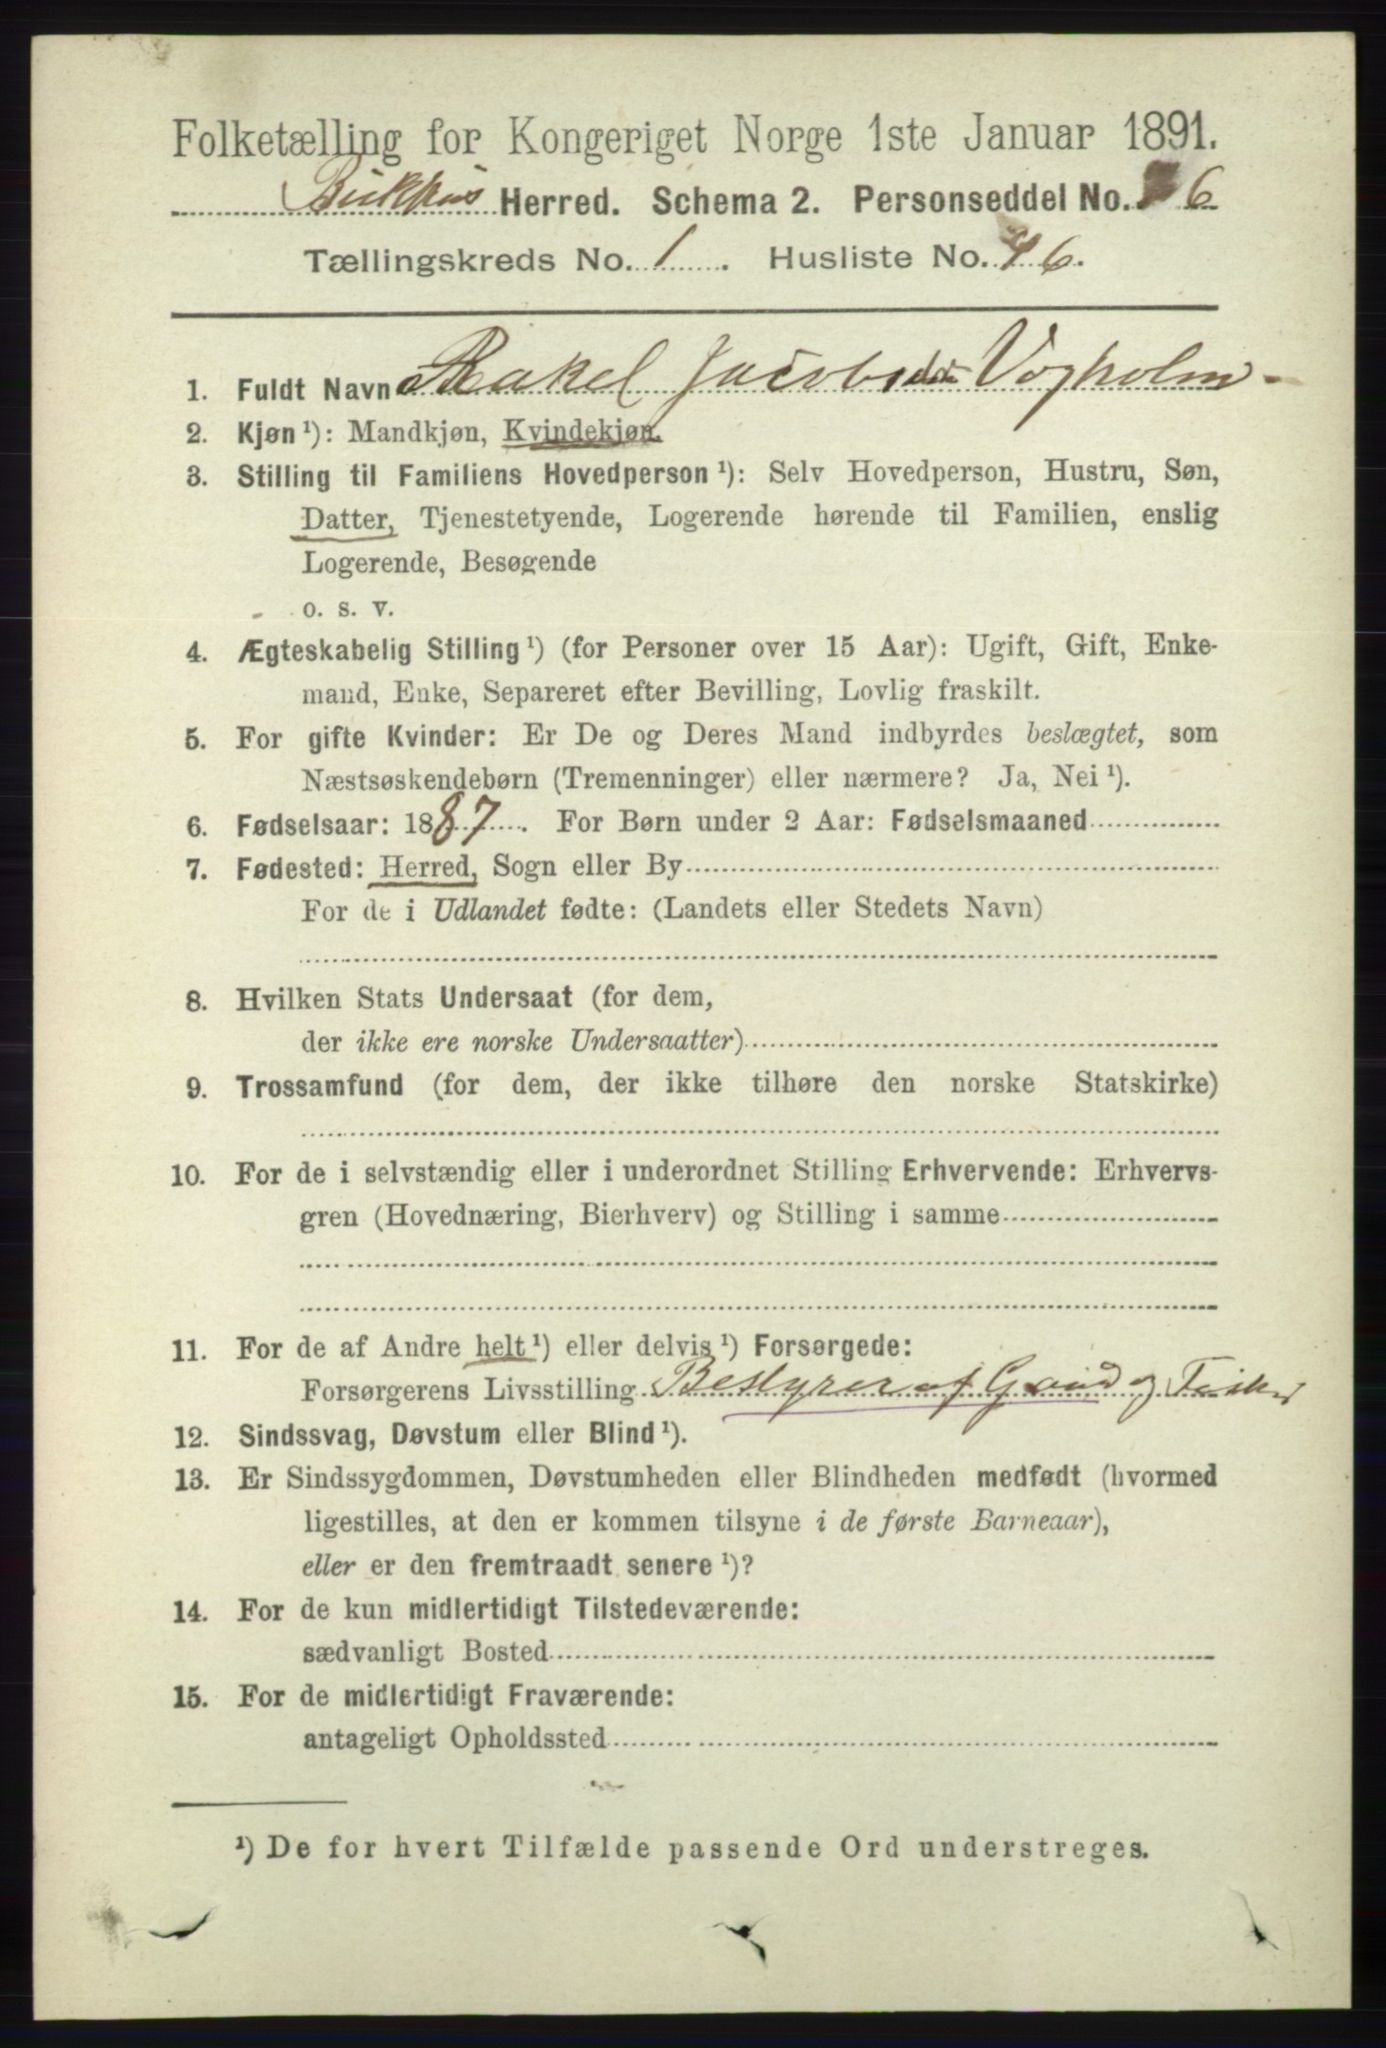 Folketælling for Kongeriget Norge 1ste Januar 1891.
Herred. Schema 2. Personseddel No. 6
Tællingskreds No. 1. Husliste No. 46.
1. Fuldt Navn Rakel Jacobsdtr Vogholm
2. Kjøn ¹): Mandkjøn, Kvindekjøn.
3. Stilling til Familiens Hovedperson ¹): Selv Hovedperson, Hustru, Søn,
Datter, Tjenestetyende, Logerende hørende til Familien, enslig
Logerende, Besøgende
o. s. v.
4. Ægteskabelig Stilling ¹) (for Personer over 15 Aar): Ugift, Gift, Enke-
mand, Enke, Separeret efter Bevilling, Lovlig fraskilt.
5. For gifte Kvinder: Er De og Deres Mand indbyrdes beslægtet, som
Næstsøskendebørn (Tremenninger) eller nærmere? Ja, Nei ¹).
6. Fødselsaar: 1887. For Børn under 2 Aar: Fødselsmaaned
7. Fødested: Herred, Sogn eller By
For de i Udlandet fødte: (Landets eller Stedets Navn)
8. Hvilken Stats Undersaat (for dem,
der ikke ere norske Undersaatter)
9. Trossamfund (for dem, der ikke tilhøre den norske Statskirke)
10. For de i selvstændig eller i underordnet Stilling Erhvervende: Erhvervs-
gren (Hovednæring, Bierhverv) og Stilling i samme
11. For de af Andre helt ¹) eller delvis ¹) Forsørgede:
Forsørgerens Livsstilling Bestyrer af Gaard og
12. Sindssvag, Døvstum eller Blind ¹).
13. Er Sindssygdommen, Døvstumheden eller Blindheden medfødt (hvormed
ligestilles, at den er kommen tilsyne i de første Barneaar),
eller er den fremtraadt senere ¹)?
14. For de kun midlertidigt Tilstedeværende:
sædvanligt Bosted
15. For de midlertidigt Fraværende:
antageligt Opholdssted
¹) De for hvert Tilfælde passende Ord understreges.